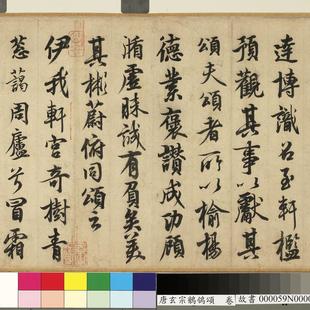 達博識召至軒檻
預觀其事以獻其
頌夫頌者所以揄揚
德業褒讚成功顧
循虛昧誠有負矣美
其彬蔚俯同頌云
伊我軒宮奇樹青
蔥藹周廬兮冒霜
唐玄宗鶺鴒頌 卷 故書 000059N0000